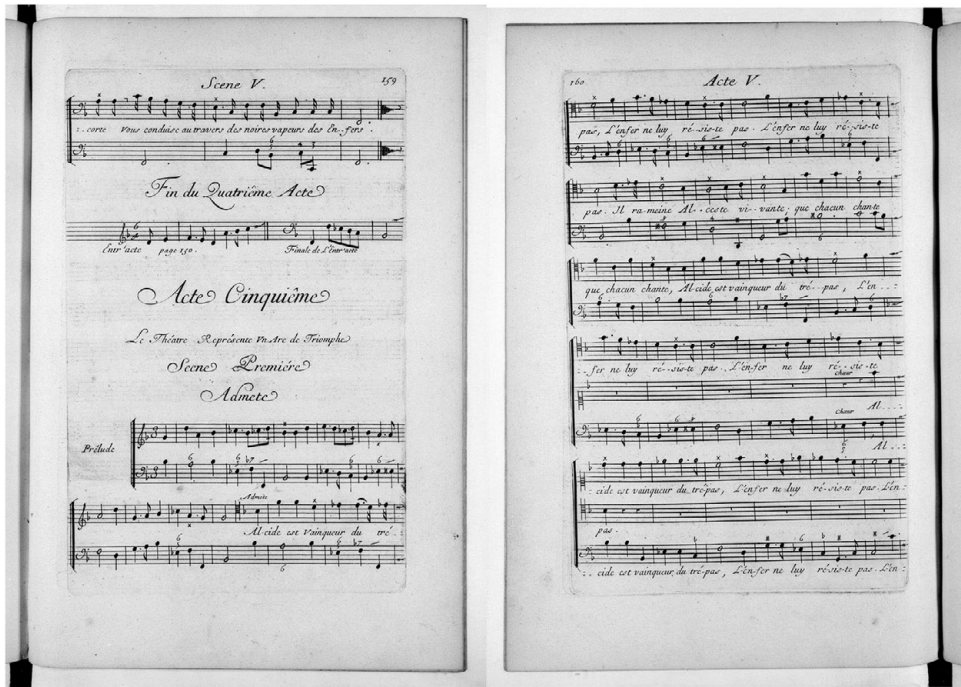 Scene V.
159
:. corte Vous conduise au travers des noires vapeurs des En-fers.
Fin du Quatriême Acte
Entr'acte page 150. Finale de L'entr'acte
Acte Cinquiême
Le Théatre Représente Un Arc de Triomphe
Scene Premiére
Admete
Prélude
Admete
Al-cide est Vainqueur du tré-:
160
Acte V.
pas, L'énfer ne luy ré-sis-te pas. L'énfer ne luy ré-sis-te
pas. Il ra-meine Al-ceste vi-vante; que chacun chante
que chacun chante, Al-cide est vainqueur du tré-pas, L'én-:
:-fer ne luy ré-sis-te pas. L'én-fer ne luy ré-sis-te
Chœur
Al-:
Chœur
Al-:
:-cide est vainqueur du tré-pas, L'én-fer ne luy ré-sis-te pas. L'én:
pas.
:-cide est vainqueur du tré-pas, L'én-fer ne luy ré-sis-te pas. L'én-: